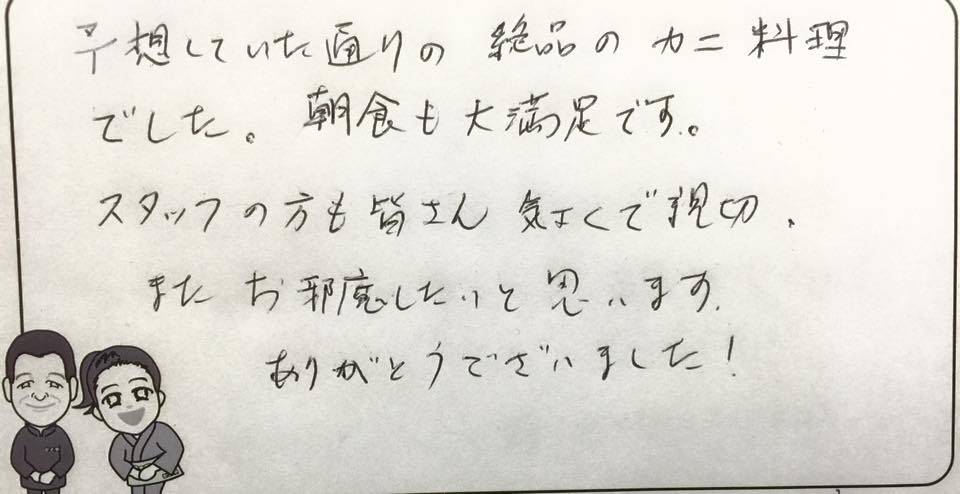 予想していた通りの 絶品の カニ 料理
でした。朝食も大満足です。
スタッフの方も皆さん 気よくで親切、
また お邪魔したいと思います。
ありがとうございました!